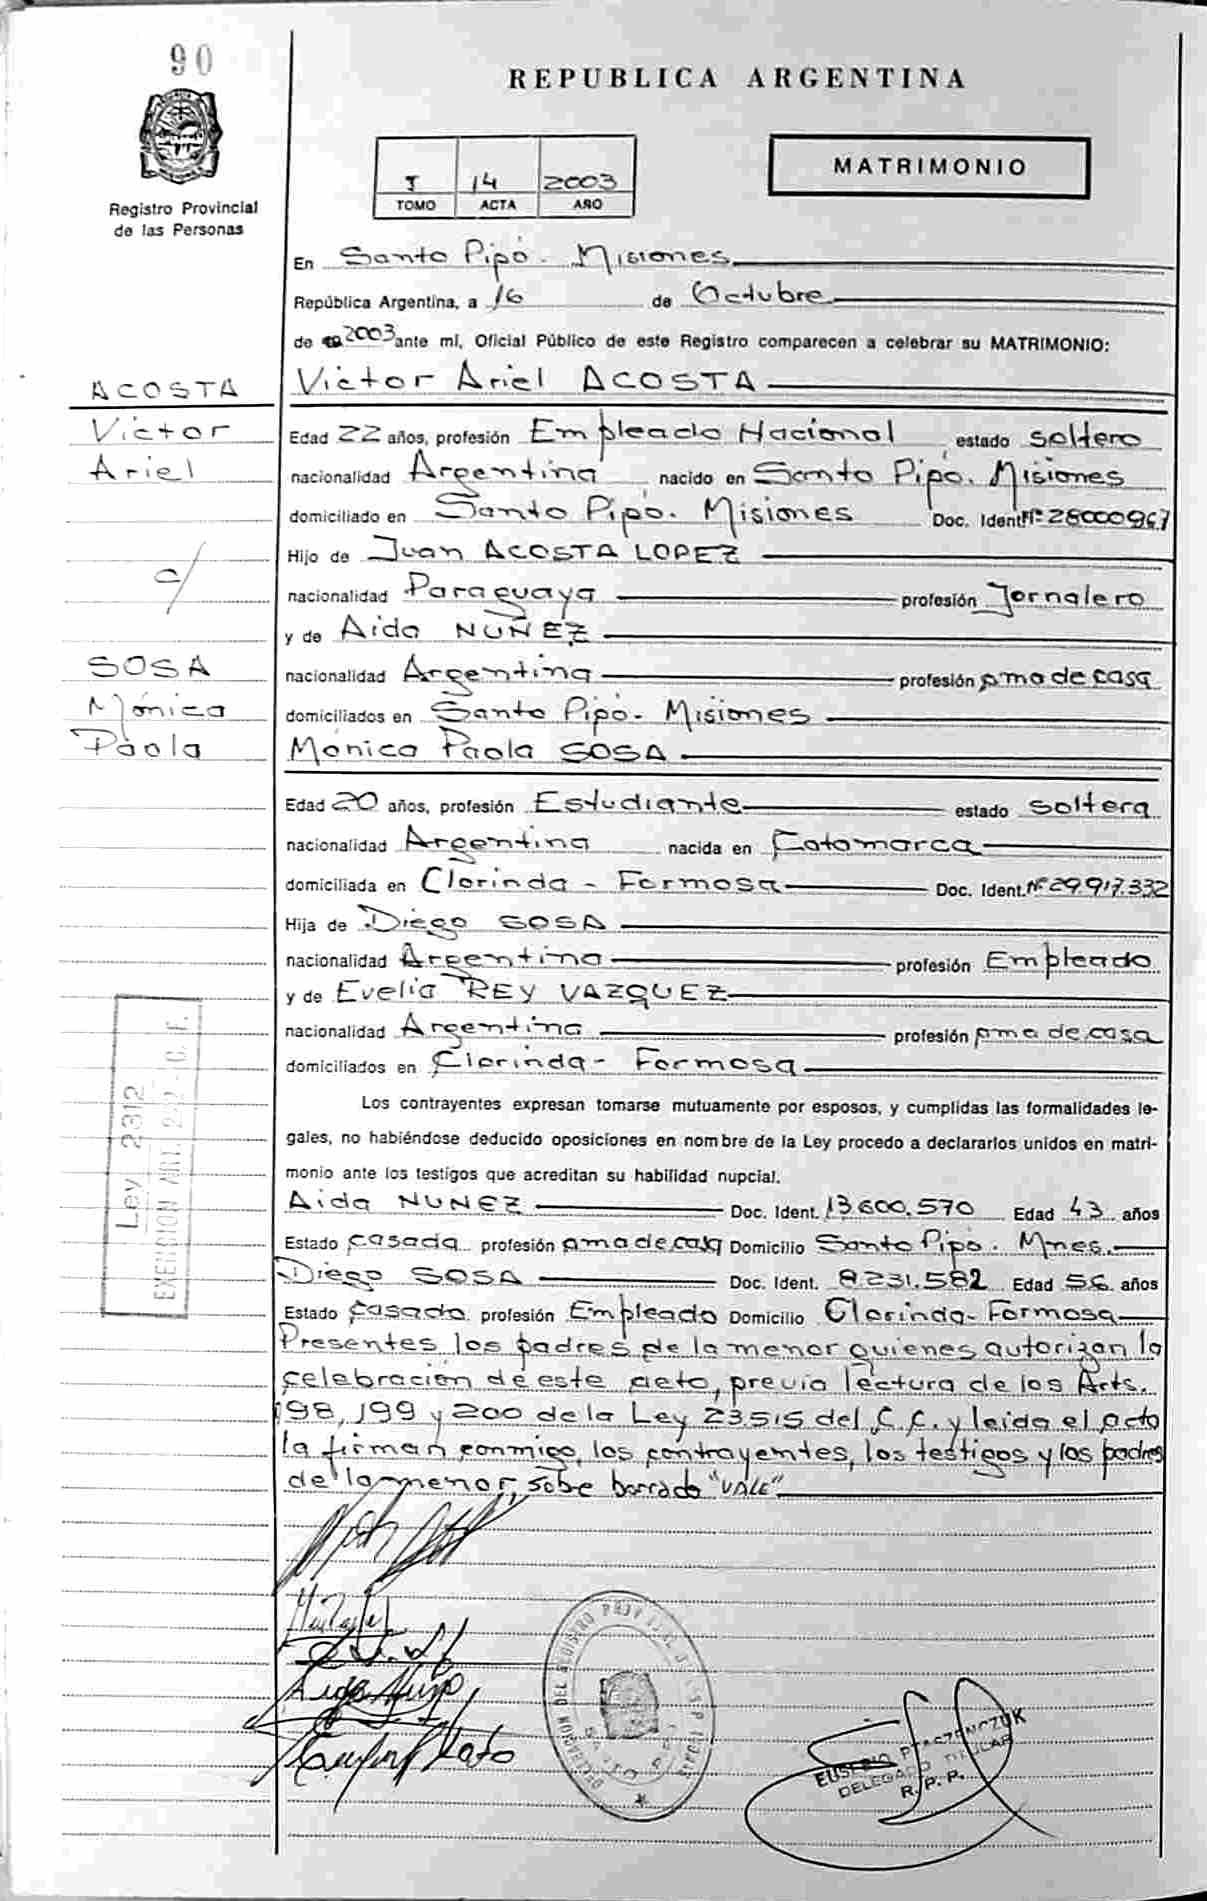 90
REPUBLICA ARGENTINA
Registro Provincial
de las Personas
I 14 2003
TOMO ACTA AÑO
MATRIMONIO
En Santo Pipó - Misiones
República Argentina, a 16 de Octubre
de 2003 ante mí, Oficial Público de este Registro comparecen a celebrar su MATRIMONIO:
ACOSTA
Victor
Ariel
c/
SOSA
Mónica
Paola
Victor Ariel ACOSTA
Edad 22 años, profesión Empleado Nacional, estado soltero
nacionalidad Argentina, nacido en Santo Pipó. Misiones
domiciliado en Santo Pipó. Misiones Doc. Ident Nº 28000967
Hijo de Juan ACOSTA LOPEZ
nacionalidad Paraguaya profesión Jornalero
y de Aida NUÑEZ
nacionalidad Argentina profesión ama de casa
domiciliados en Santo Pipó - Misiones
Mónica Paola SOSA
Edad 20 años, profesión Estudiante estado soltera
nacionalidad Argentina nacida en Catamarca
domiciliada en Clorinda - Formosa Doc. Ident. Nº 29.917.332
Hija de Diego SOSA
nacionalidad Argentina profesión Empleado
y de Evelia REY VAZQUEZ
nacionalidad Argentina profesión ama de casa
domiciliados en Clorinda - Formosa
Los contrayentes expresan tomarse mutuamente por esposos, y cumplidas las formalidades le-
gales, no habiéndose deducido oposiciones en nombre de la Ley procedo a declararlos unidos en matri-
monio ante los testigos que acreditan su habilidad nupcial.
Aida NUÑEZ Doc. Ident. 13.600.570 Edad 43 años
Estado casada profesión ama de casa Domicilio Santo Pipó. Mnes.
Diego SOSA Doc. Ident. 8.231.582 Edad 56 años
Estado casado profesión Empleado Domicilio Clorinda - Formosa
Presentes los padres de la menor quienes autorizan la
celebración de este acto, previa lectura de los Arts.
198, 199 y 200 de la Ley 23.515 del C.C. y leída el acta
la firman conmigo, los contrayentes, los testigos y los padres
de la menor, sobre borrado "VALE"
Ley 2312
EXENCION ART.
EUSEBIO
DELEGADO TITULAR
R. P. P.